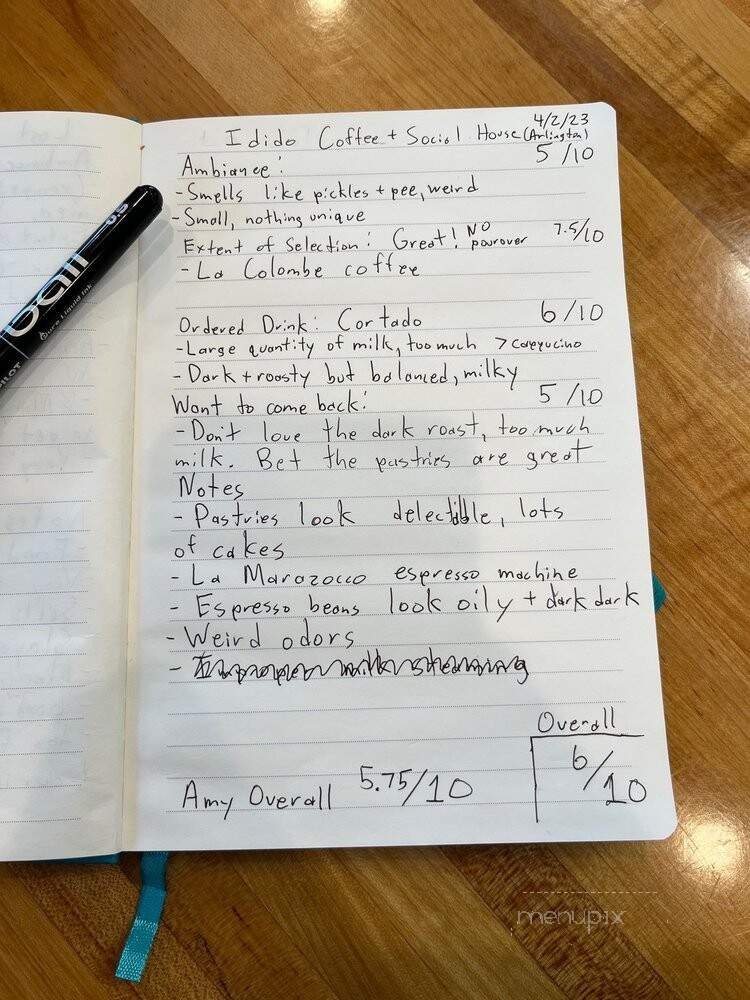 4/2/23
Idido Coffee + Social House (Arlington)
Ambiance: 5/10
- Smells like pickles + pee, weird
- Small, nothing unique
Extent of Selection: Great! NO pourover 7.5/10
- La Colombe coffee
Ordered Drink: Cortado 6/10
- Large quantity of milk, too much > cappucino
- Dark + roasty but balanced, milky
Want to come back: 5/10
- Don't love the dark roast, too much
milk. Bet the pastries are great
Notes
- Pastries look delectible, lots
of cakes
- La Marozocco espresso machine
- Espresso beans look oily + dark dark
- Weird odors
- Improper milk steaming
Overall
6/10
Amy Overall 5.75/10
ball
0.5
Pure Liquid Ink
PILOT
menupix